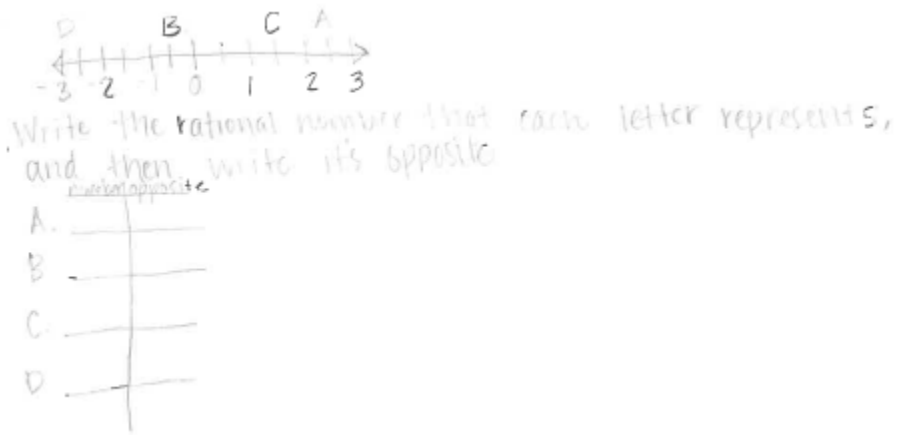 D B C A
-3 -2 -1 0 1 2 3
Write the rational number that each letter represents,
and then write it's opposite
number opposite
A.
B
C.
D